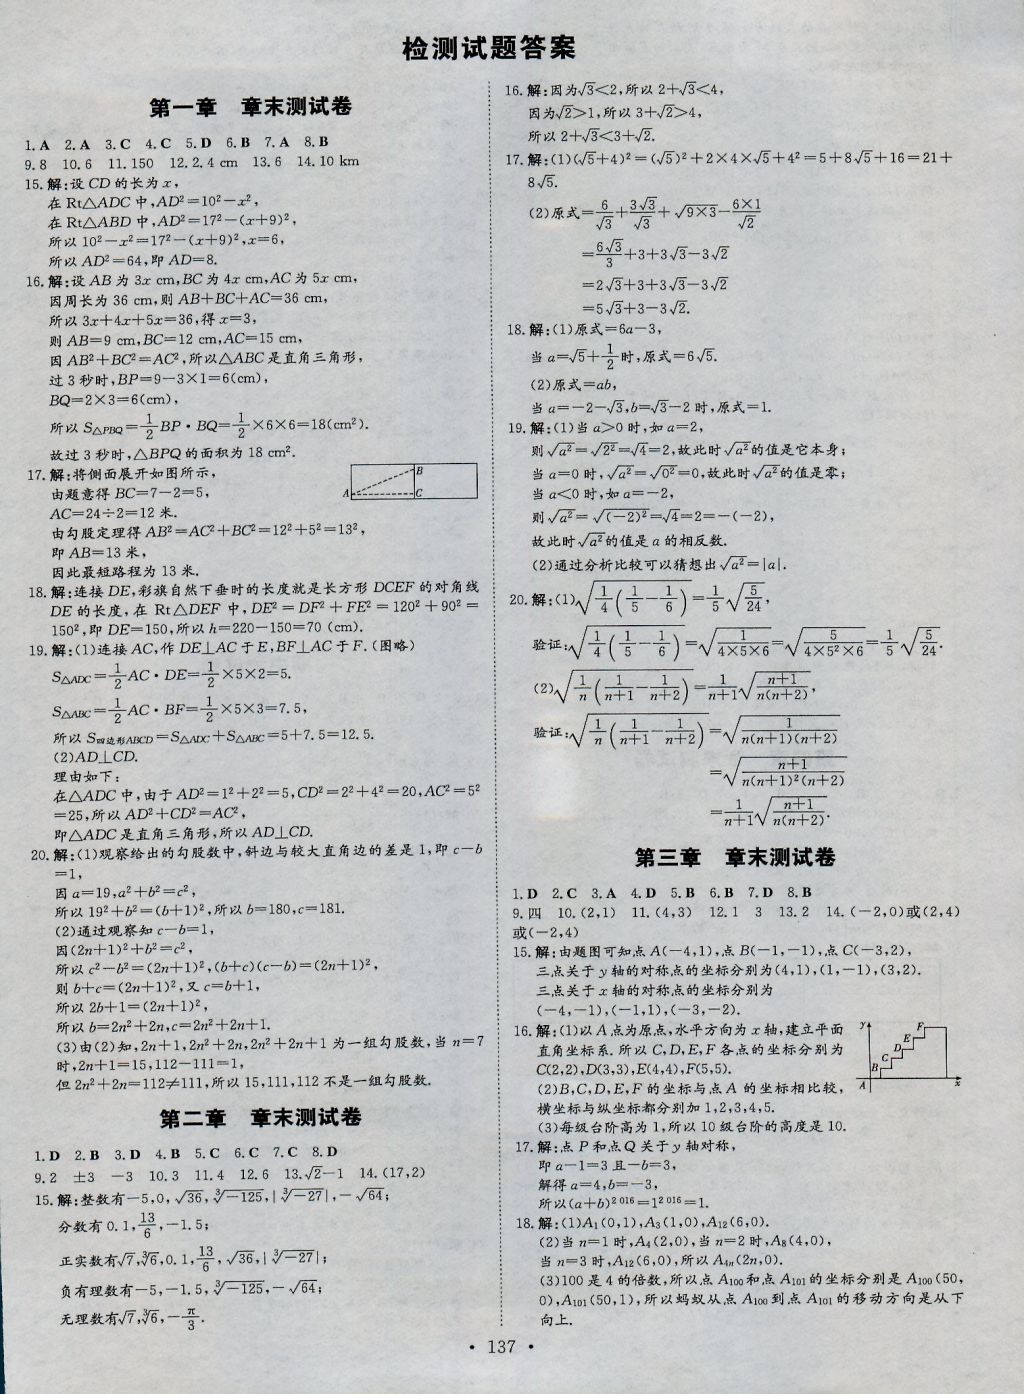 检测试题答案
第一章　章末测试卷
1.A 2.A 3.C 4.C 5.D 6.B 7.A 8.B
9.8 10.6 11.150 12.2.4 cm 13.6 14.10 km
15.解:设CD的长为x,
在Rt△ADC中,AD²=10²-x²,
在Rt△ABD中,AD²=17²-(x+9)²,
所以10²-x²=17²-(x+9)²,x=6,
所以AD²=64,即AD=8.
16.解:设AB为3x cm,BC为4x cm,AC为5x cm,
因周长为36 cm,则AB+BC+AC=36 cm,
所以3x+4x+5x=36,得x=3,
则AB=9 cm,BC=12 cm,AC=15 cm,
因AB²+BC²=AC²,所以△ABC是直角三角形,
过3秒时,BP=9-3×1=6(cm),
BQ=2×3=6(cm),
所以S△PBQ=1/2 BP·BQ=1/2×6×6=18(cm²).
故过3秒时,△BPQ的面积为18 cm².
17.解:将侧面展开如图所示,
由题意得BC=7-2=5,
AC=24÷2=12米.
由勾股定理得AB²=AC²+BC²=12²+5²=13²,
即AB=13米,
因此最短路程为13米.
A B C
18.解:连接DE,彩旗自然下垂时的长度就是长方形DCEF的对角线
DE的长度,在Rt△DEF中,DE²=DF²+FE²=120²+90²=
150²,即DE=150,所以h=220-150=70 (cm).
19.解:(1)连接AC,作DE⊥AC于E,BF⊥AC于F.(图略)
S△ADC=1/2 AC·DE=1/2×5×2=5.
S△ABC=1/2 AC·BF=1/2×5×3=7.5,
所以S四边形ABCD=S△ADC+S△ABC=5+7.5=12.5.
(2)AD⊥CD.
理由如下:
在△ADC中,由于AD²=1²+2²=5,CD²=2²+4²=20,AC²=5²
=25,所以AD²+CD²=AC²,
即△ADC是直角三角形,所以AD⊥CD.
20.解:(1)观察给出的勾股数中,斜边与较大直角边的差是1,即c-b
=1,
因a=19,a²+b²=c²,
所以19²+b²=(b+1)²,所以b=180,c=181.
(2)通过观察知c-b=1,
因(2n+1)²+b²=c²,
所以c²-b²=(2n+1)²,(b+c)(c-b)=(2n+1)²,
则b+c=(2n+1)²,又c=b+1,
所以2b+1=(2n+1)²,
所以b=2n²+2n,c=2n²+2n+1.
(3)由(2)知,2n+1,2n²+2n,2n²+2n+1为一组勾股数,当n=7
时,2n+1=15,112-111=1,
但2n²+2n=112≠111,所以15,111,112不是一组勾股数.
第二章　章末测试卷
1.D 2.B 3.D 4.B 5.C 6.C 7.C 8.D
9.2 ±3 -3 10.3 11.4 12.6 13.√2-1 14.(17,2)
15.解:整数有-5,0,√36,∛-125,|∛-27|,-√64;
分数有0.1,13/6,-1.5;
正实数有√7,∛6,0.1,13/6,√36,|∛-27|;
负有理数有-5,-1.5,∛-125,-√64;
无理数有√7,∛6,-π/3.
16.解:因为√3<2,所以2+√3<4,
因为√2>1,所以3+√2>4,
所以2+√3<3+√2.
17.解:(1)(√5+4)²=(√5)²+2×4×√5+4²=5+8√5+16=21+
8√5.
(2)原式=6/√3+3√3/√3+√(9×3)-6×1/√2
=6√3/3+3+3√3-3√2
=2√3+3+3√3-3√2
=5√3+3-3√2.
18.解:(1)原式=6a-3,
当a=√5+1/2时,原式=6√5.
(2)原式=ab,
当a=-2-√3,b=√3-2时,原式=1.
19.解:(1)当a>0时,如a=2,
则√a²=√2²=√4=2,故此时√a²的值是它本身;
当a=0时,√a²=√0²=0,故此时√a²的值是零;
当a<0时,如a=-2,
则√a²=√(-2)²=√4=2=-(-2),
故此时√a²的值是a的相反数.
(2)通过分析比较可以猜想出√a²=|a|.
20.解:(1)√(1/4(1/5-1/6))=1/5√(5/24),
验证:√(1/4(1/5-1/6))=√(1/(4×5×6))=√(5/(4×5²×6))=1/5√(5/24).
(2)√(1/n(1/(n+1)-1/(n+2)))=1/(n+1)√((n+1)/(n(n+2))),
验证:√(1/n(1/(n+1)-1/(n+2)))=√(1/(n(n+1)(n+2)))
=√((n+1)/(n(n+1)²(n+2)))
=1/(n+1)√((n+1)/(n(n+2))).
第三章　章末测试卷
1.D 2.C 3.A 4.D 5.B 6.B 7.D 8.B
9.四 10.(2,1) 11.(4,3) 12.1 3 13.2 14.(-2,0)或(2,4)
或(-2,4)
15.解:由题图可知点A(-4,1),点B(-1,-1),点C(-3,2),
三点关于y轴的对称点的坐标分别为(4,1),(1,-1),(3,2).
三点关于x轴的对称点的坐标分别为
(-4,-1),(-1,1),(-3,-2).
16.解:(1)以A点为原点,水平方向为x轴,建立平面
直角坐标系.所以C,D,E,F各点的坐标分别为
C(2,2),D(3,3),E(4,4),F(5,5).
(2)B,C,D,E,F的坐标与点A的坐标相比较,
横坐标与纵坐标都分别加1,2,3,4,5.
(3)每级台阶高为1,所以10级台阶的高度是10.
y F E D C B A x
17.解:点P和点Q关于y轴对称,
即a-1=3且-b=3,
解得a=4,b=-3,
所以(a+b)²⁰¹⁶=1²⁰¹⁶=1.
18.解:(1)A₁(0,1),A₃(1,0),A₁₂(6,0).
(2)当n=1时,A₄(2,0),当n=2时,A₈(4,0),
当n=3时,A₁₂(6,0),所以A₄ₙ(2n,0).
(3)100是4的倍数,所以点A₁₀₀和点A₁₀₁的坐标分别是A₁₀₀(50,
0),A₁₀₁(50,1),所以蚂蚁从点A₁₀₀到点A₁₀₁的移动方向是从下
向上.
• 137 •